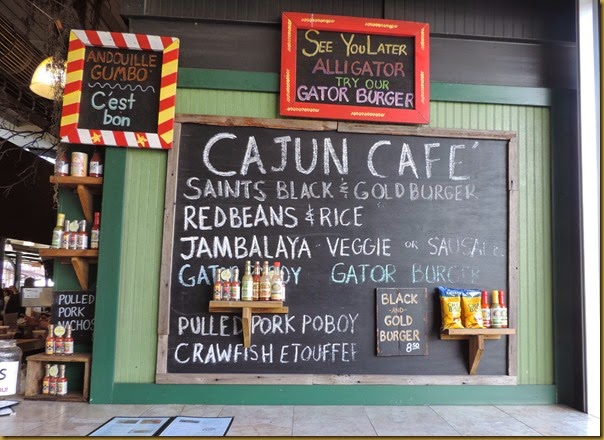 ANDOUILLE
GUMBO
C'est
bon
SEE YOU LATER
ALLIGATOR
TRY OUR
GATOR BURGER
CAJUN CAFÉ
SAINTS BLACK & GOLD BURGER
RED BEANS & RICE
JAMBALAYA VEGGIE OR SAUSAGE
GATOR POBOY GATOR BURGER
PULLED PORK POBOY
CRAWFISH ETOUFFEE
BLACK
AND
GOLD
BURGER
8.50
PULLED
PORK
NACHOS